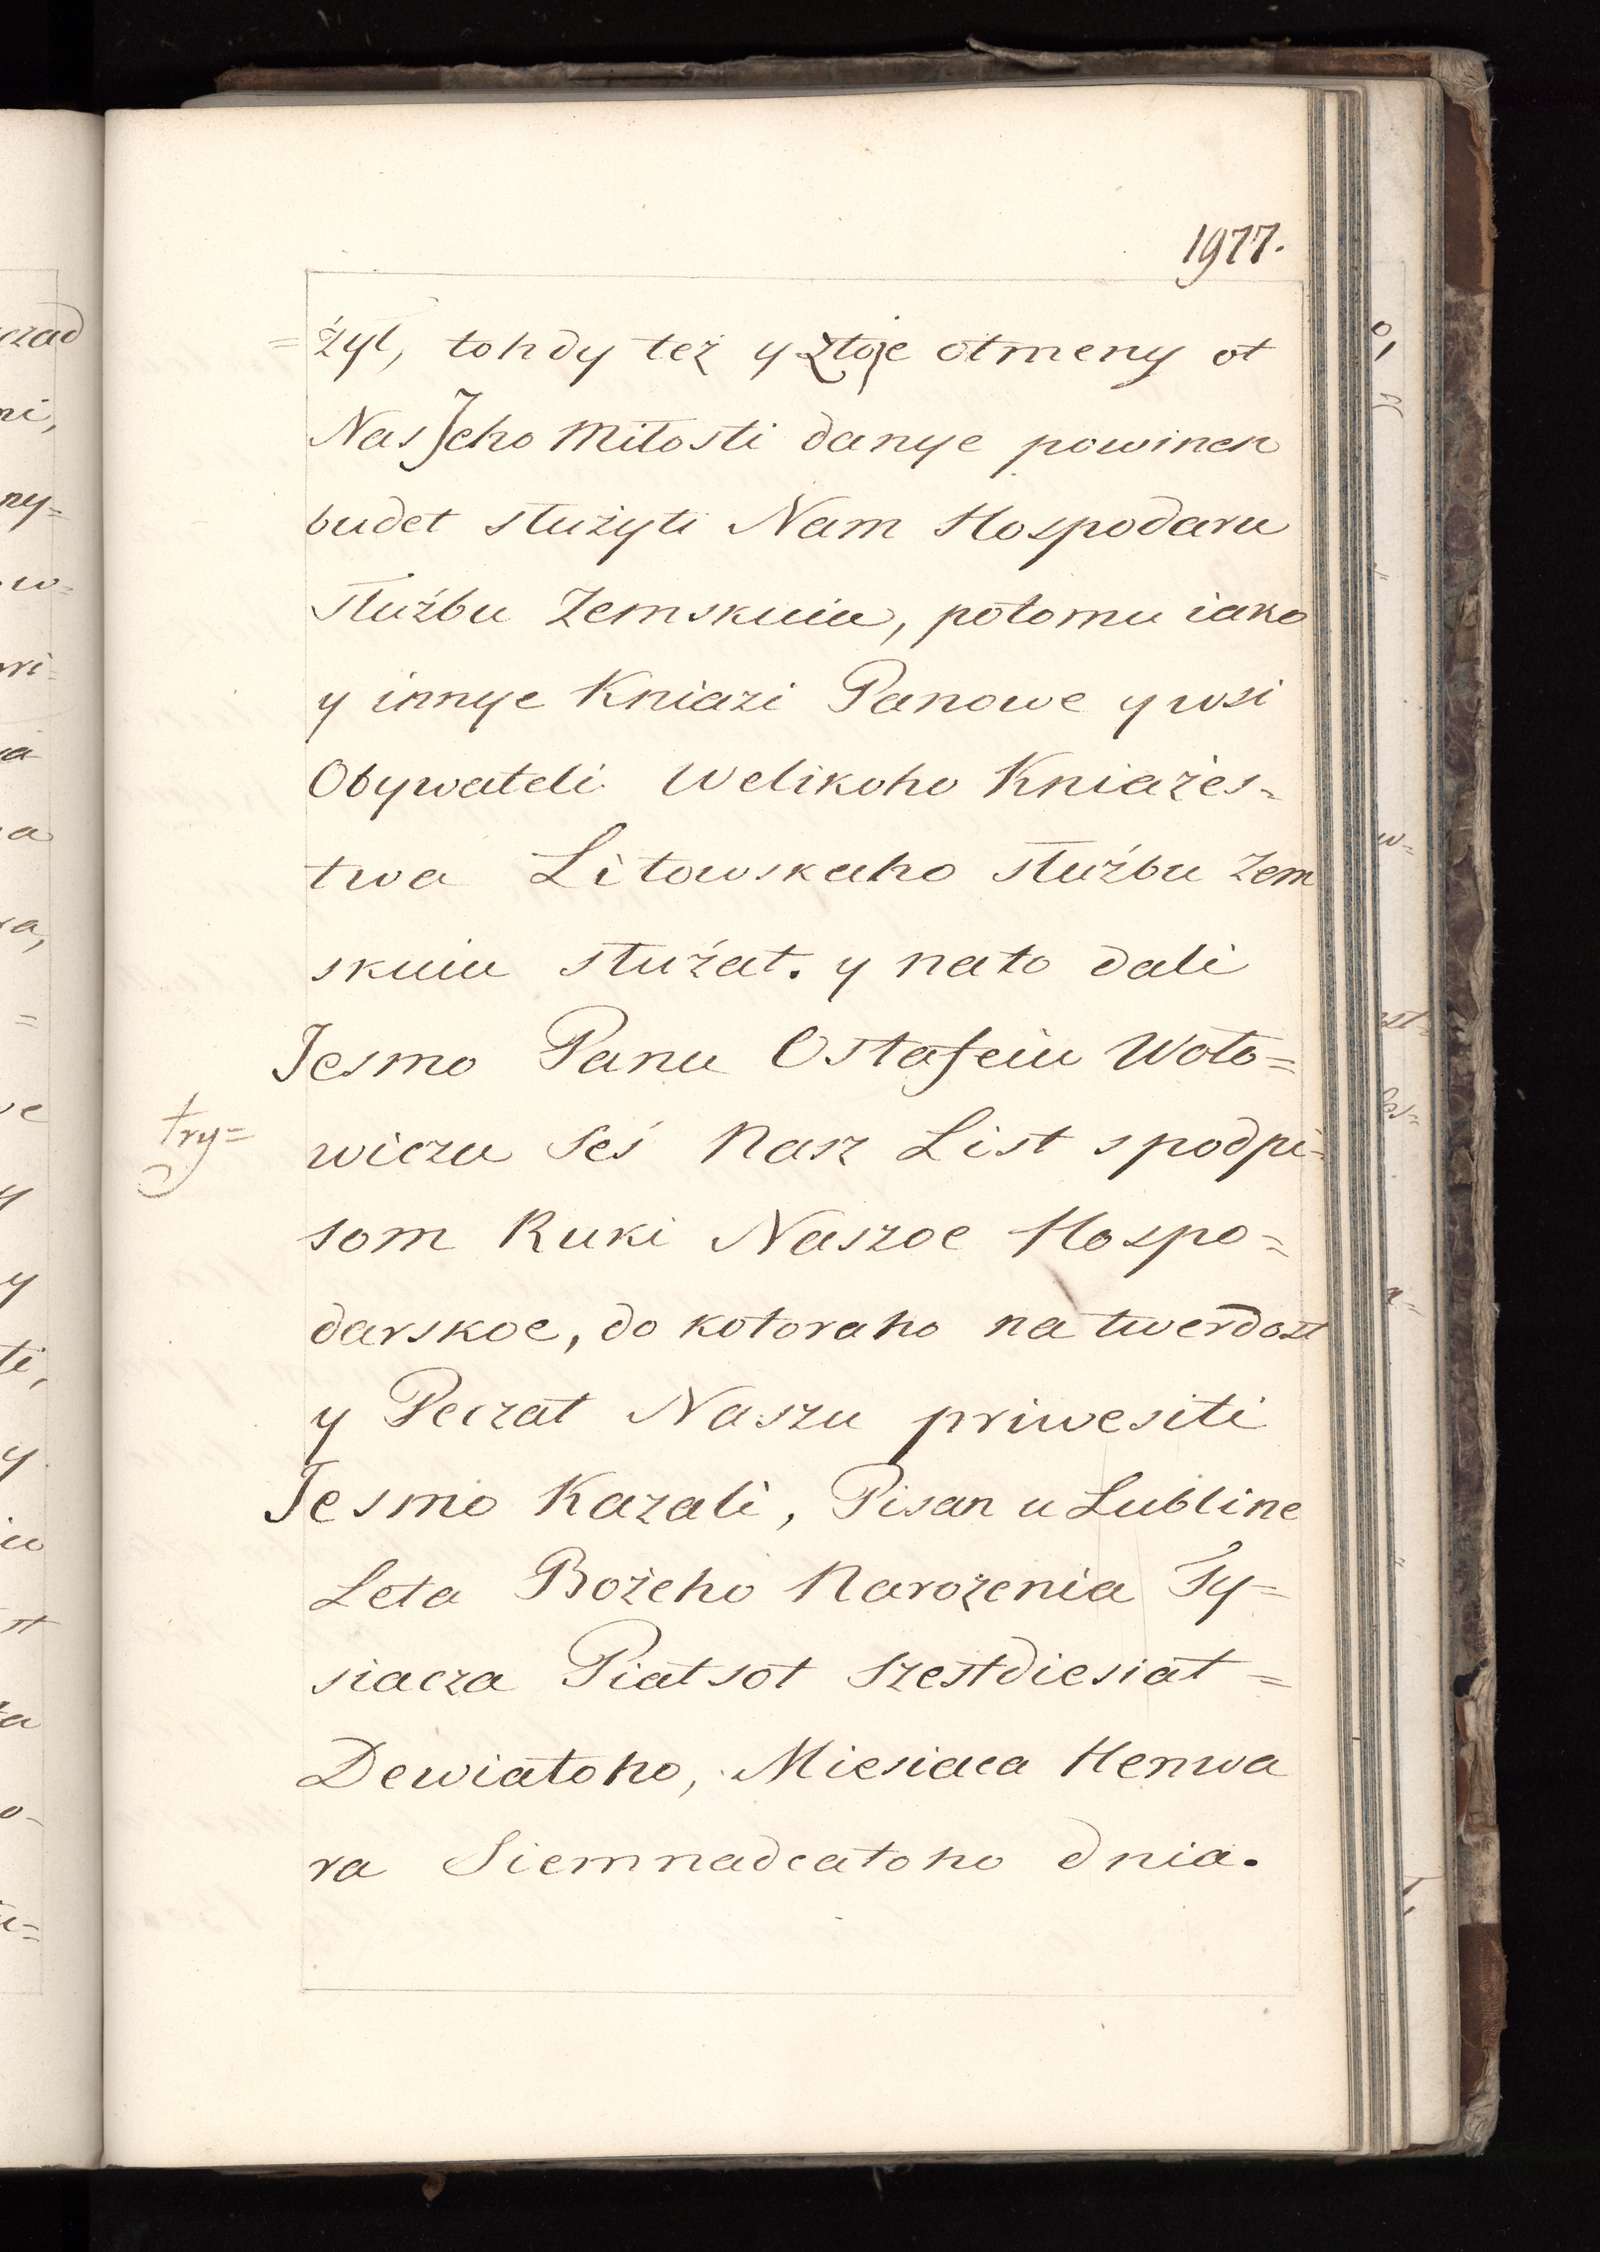 1977.
=żył, tohdy też y ztoje otmeny ot
Nas Jeho Miłosti danye powinen
budet służyti Nam Hospodaru
służbu Zemskuiu, potomu iako
y innye Kniazi Panowe y wsi
Obywateli Welikoho Kniażes=
twa Litowskaho służbu zem
skuiu służat. y nato dali
Jesmo Panu Ostafeiu Woło=
try=
wiczu Seś Nasz List spodpi=
som Ruki Naszoe Hospo=
darskoe, do kotoraho na twerdost
y Peczat Naszu priwesiti
Jesmo Kazali, Pisan u Lubline
Leta Bożeho Narożenia Ty=
siacza Piatsot Szestdiesiat=
Dewiatoho, Miesiaca Henwa
ra Siemnadcatoho dnia.